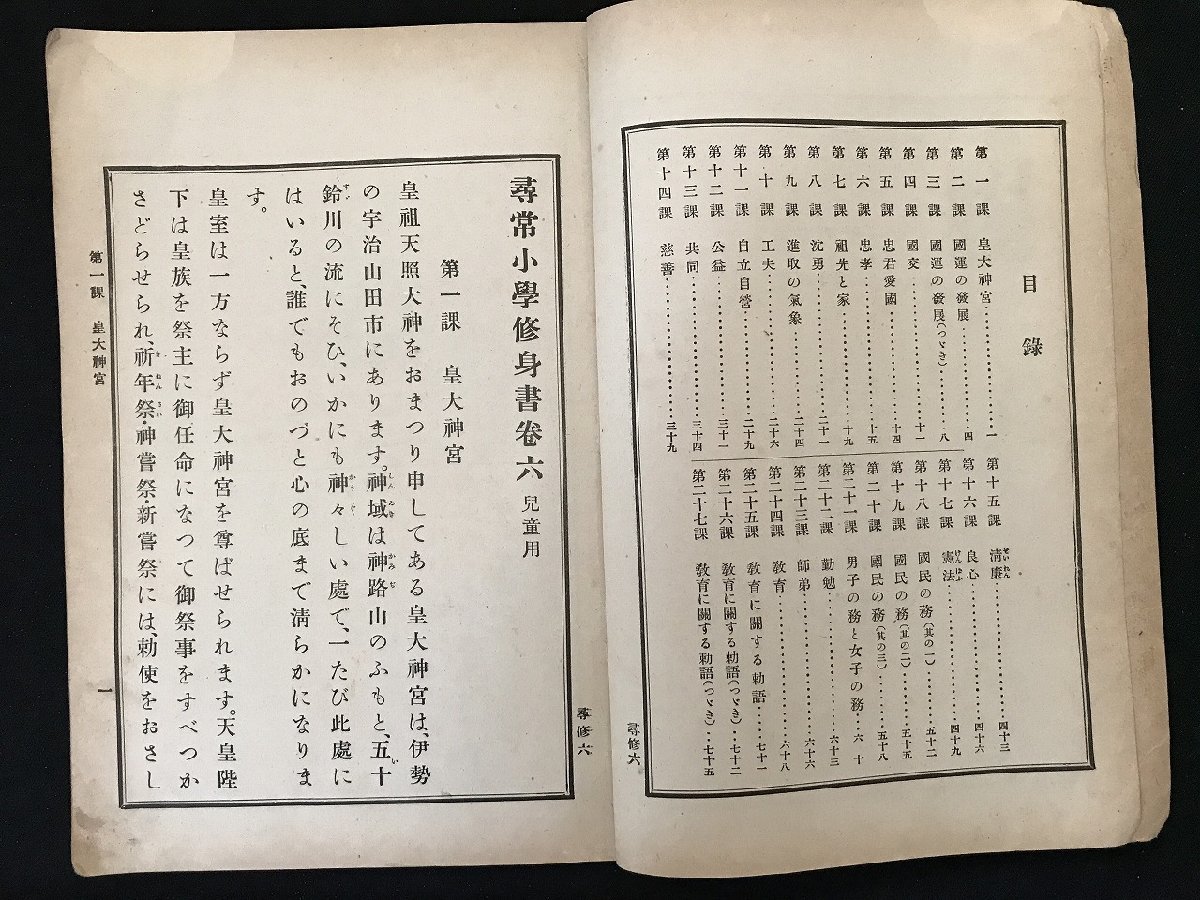 目錄
第一課 皇大神宮‥‥‥‥一
第二課 國運の發展‥‥‥‥四
第三課 國運の發展(つづき)‥‥‥‥八
第四課 國交‥‥‥‥十一
第五課 忠君愛國‥‥‥‥十四
第六課 忠孝‥‥‥‥十五
第七課 祖先と家‥‥‥‥十九
第八課 沈勇‥‥‥‥二十一
第九課 進取の氣象‥‥‥‥二十四
第十課 工夫‥‥‥‥二十六
第十一課 自立自營‥‥‥‥二十九
第十二課 公益‥‥‥‥三十一
第十三課 共同‥‥‥‥三十四
第十四課 慈善‥‥‥‥三十九
第十五課 淸廉‥‥‥‥四十三
第十六課 良心‥‥‥‥四十六
第十七課 憲法‥‥‥‥四十九
第十八課 國民の務(其の一)‥‥‥‥五十二
第十九課 國民の務(其の二)‥‥‥‥五十五
第二十課 國民の務(其の三)‥‥‥‥五十八
第二十一課 男子の務と女子の務‥‥六十
第二十二課 勤勉‥‥‥‥六十三
第二十三課 師弟‥‥‥‥六十六
第二十四課 敎育‥‥‥‥六十八
第二十五課 敎育に關する勅語‥‥‥‥七十一
第二十六課 敎育に關する勅語(つづき)‥‥七十二
第二十七課 敎育に關する勅語(つづき)‥‥七十五
尋修六
尋修六
尋常小學修身書卷六 兒童用
第一課 皇大神宮
皇祖天照大神をおまつり申してある皇大神宮は、伊勢
の宇治山田市にあります。神域は神路山のふもと、五十
鈴川の流にそひ、いかにも神々しい處で、一たび此處に
はいると、誰でもおのづと心の底まで淸らかになりま
す。
皇室は一方ならず皇大神宮を尊ばせられます。天皇陛
下は皇族を祭主に御任命になつて御祭事をすべつか
さどらせられ、祈年祭・神嘗祭・新嘗祭には、勅使をおさし
第一課 皇大神宮
一